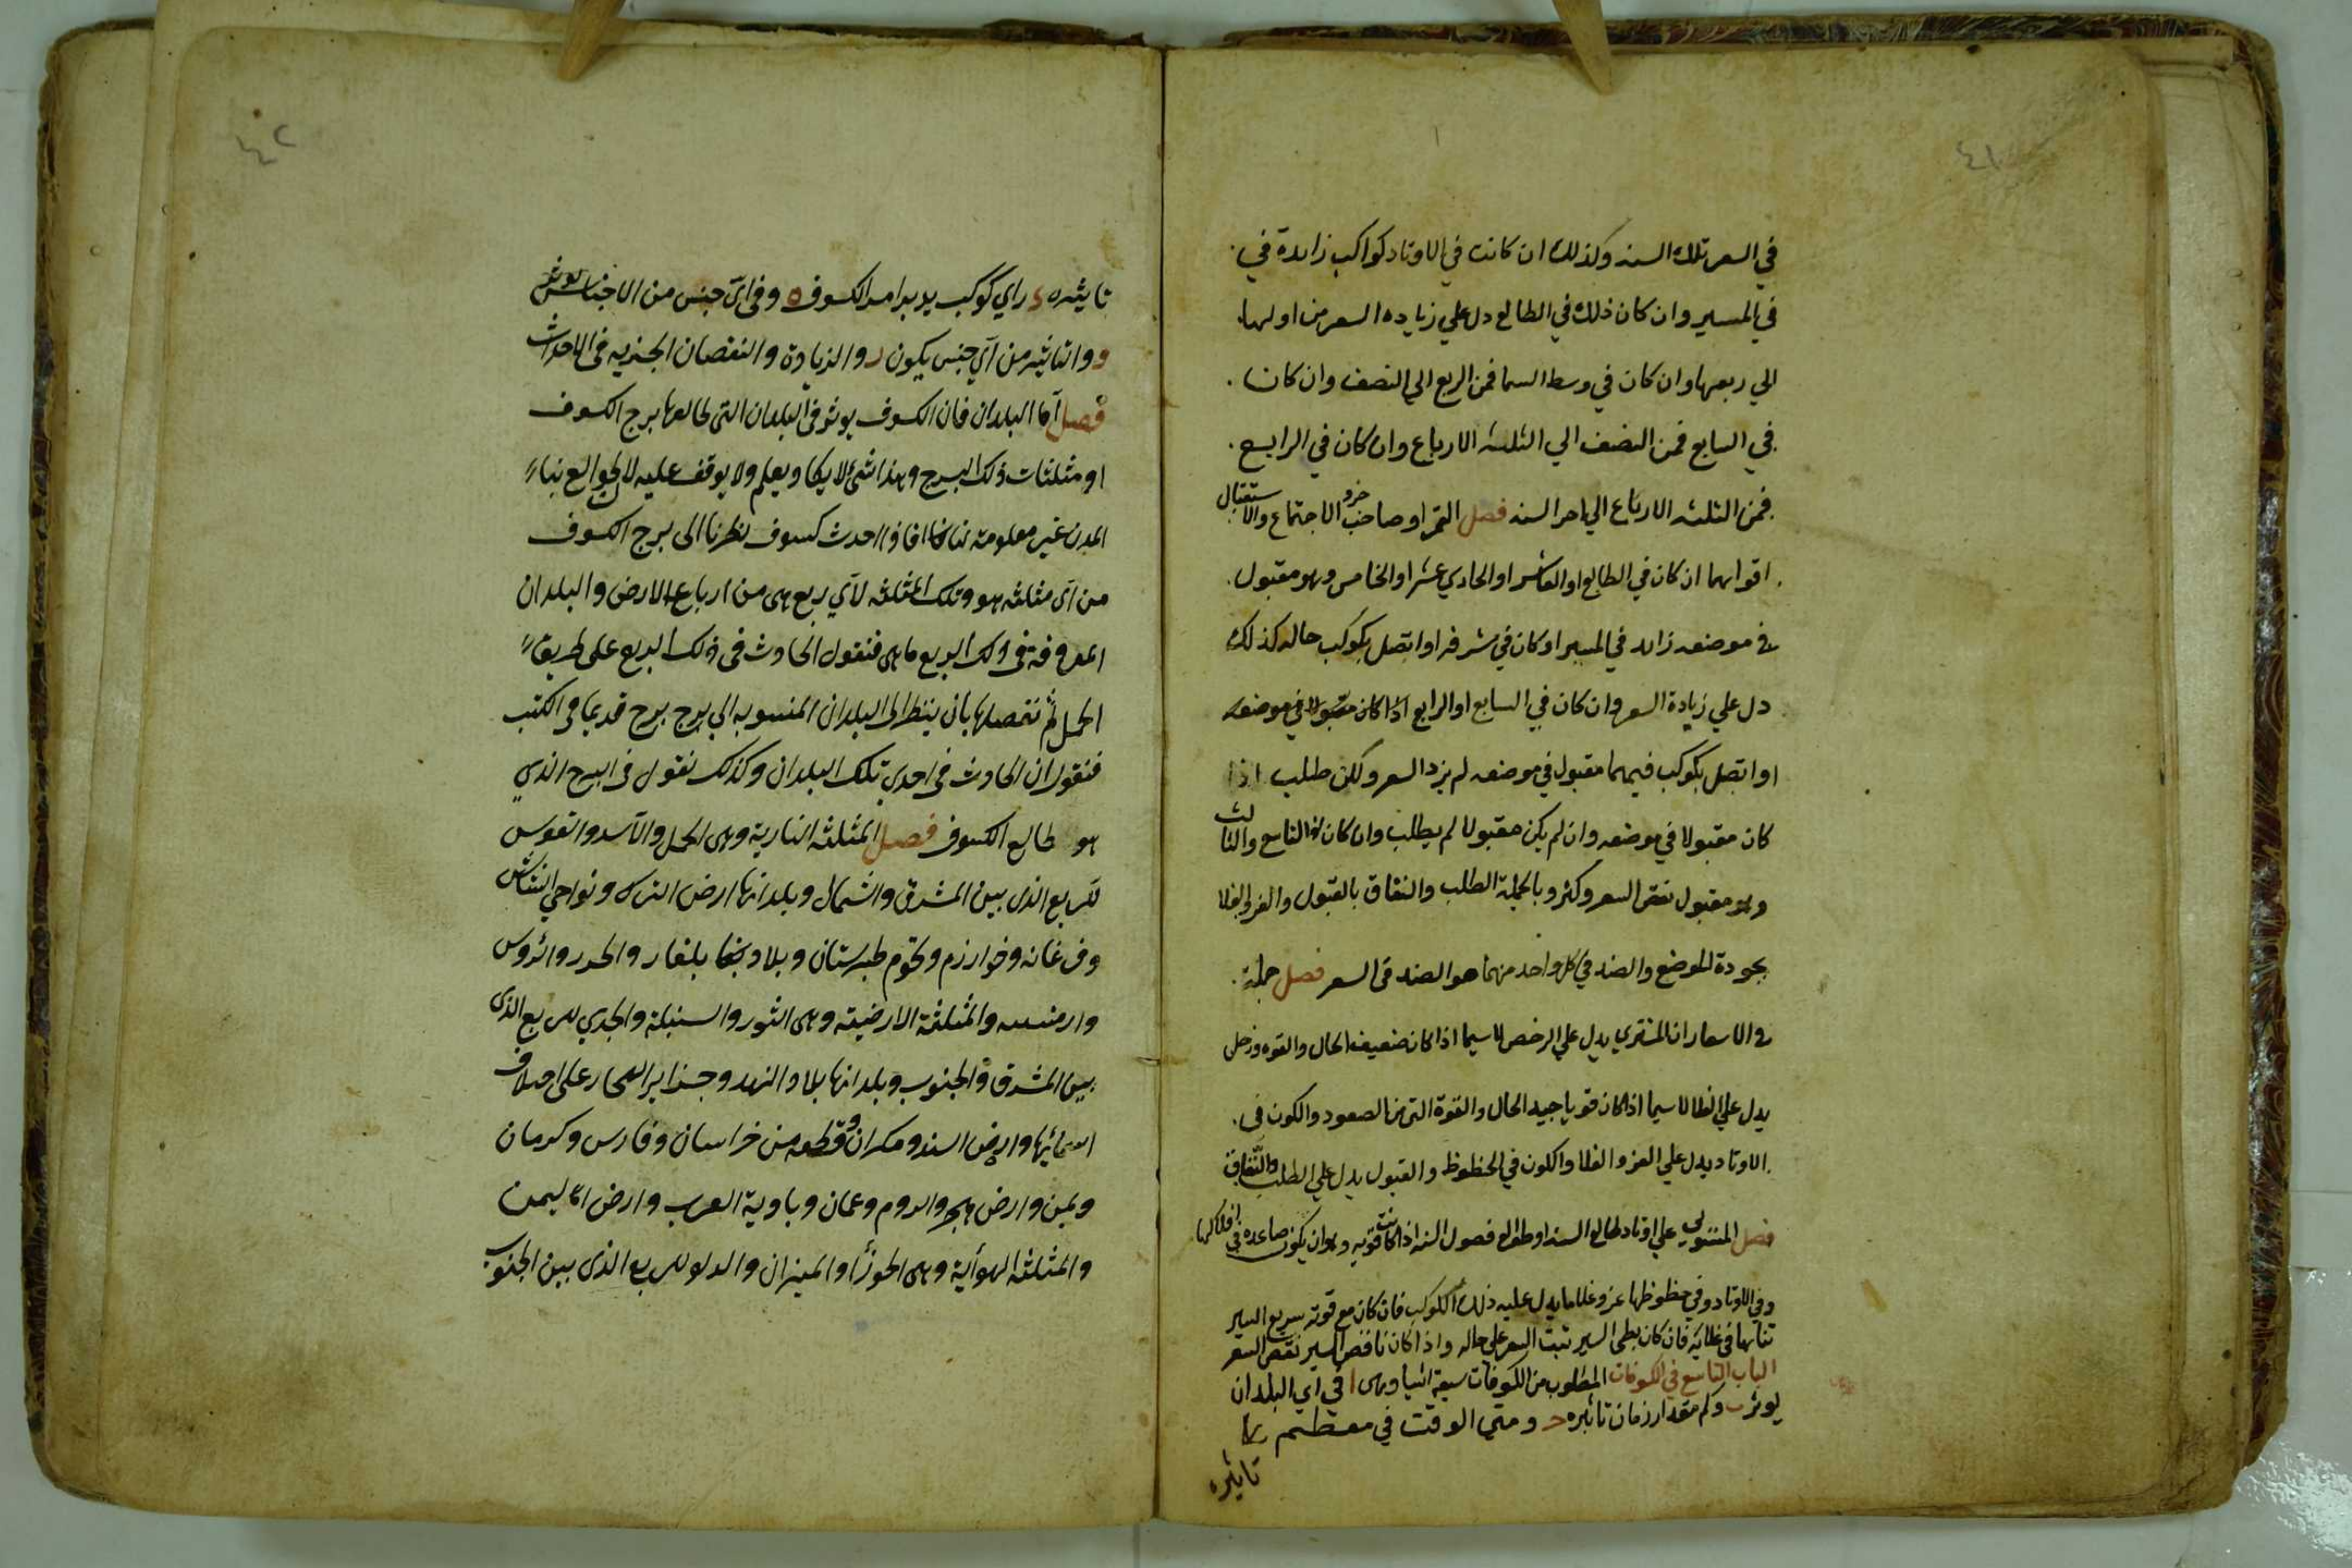 ٤١
في السعر تلك السنه وكذلك ان كانت في الاوتاد كواكب زايدة في
في المسير وان كان ذلك في الطالع دل علي زياده السعر من اولها
الي ربعها وان كان في وسط السما فمن الربع الي النصف وان كان
في السابع فمن النصف الي الثلثه الارباع وان كان في الرابع
فمن الثلثه الارباع الي اخر السنه فصل القمر او صاحب جزو الاجتماع والاستقبال
اقواهما ان كان في الطالع او العاشر او الحادي عشر او الخامس وهو مقبول
في موضعه زايد في المسير او كان في شرفه او اتصل بكوكب حاله كذلك
دل علي زيادة السعر وان كان في السابع او الرابع اذا كان مقبولا في موضعه
او اتصل بكوكب فيهما مقبول في موضعه لم يزد السعر ولكن طلب اذا
كان مقبولا في موضعه وان لم يكن مقبولا لم يطلب وان كان في التاسع والثالث
وهو مقبول نقص السعر وكثر وبالجملة الطلب والنفاق بالقبول والعز والغلا
بجودة الموضع والضد في كل واحد منهما هو الضد في السعر فصل جملة
في الاسعار ان المشتري يدل علي الرخص لاسيما اذا كان ضعيف الحال والقوه وزحل
يدل علي الغلا لاسيما اذا كان قويا جيد الحال والقوة التي من الصعود والكون في
الاوتاد يدل علي العز والغلا والكون في الحظوظ والقبول يدل علي الطلب والنفاق
فصل المستولي علي اوتاد طالع السنه او طوالع فصول السنه اذا كانت قويه وهو ان يكون صاعده في افلاكها
وفي الاوتاد وفي حظوظها عز وغلا ما يدل عليه ذلك الكوكب فان كان مع قوته سريع السير
تناهها في غلائه فان كان بطي السير ثبت السعر علي حاله واذا كان ناقص السير نقص السعر
الباب التاسع في الكسوفات المطلوب من الكسوفات سبعة اشيا وهي ا في اي البلدان
يوثر ب وكم مقدار زمان تاثيره ح ومتي الوقت في معظم
تاثيره
٤٢
تاثيره د واي كوكب يدبر امر الكسوف ه وفي اي جنس من الاجناس يوثر
و والتاثير من اي جنس يكون ر والزيادة والنقصان الجزيه في الاحداث
فصل اما البلدان فان الكسوف يوثر في البلدان التي طالعها برج الكسوف
او مثلثات ذلك البرج وهذا شي لا يكاد يعلم ولا يوقف عليه لان طوالع بنا
المدن غير معلومة لنا فاذا حدث كسوف نظرنا الي برج الكسوف
من اي مثلثه هو وتلك المثلثه لاي ربع هي من ارباع الارض والبلدان
المعروفة في ذلك الربع ما هي فنقول الحادث في ذلك الربع علي طريق
الجمل ثم نحصلها بان ينظر الي البلدان المنسوبه الي برج برج قديما في الكتب
فنقول ان الحادث في احدي تلك البلدان وكذلك نقول في البرج الذي
هو طالع الكسوف فصل المثلثه النارية وهي الحمل والاسد والقوس
للربع الذي بين المشرق والشمال وبلدانها ارض الترك ونواحي الشاش
وفرغانه وخوارزم وتخوم طبرستان وبلاد بلغار والخزر والروس
وارمينيه والمثلثة الارضية وهي الثور والسنبلة والجدي للربع الذي
بين المشرق والجنوب وبلدانها بلاد الهند وجزاير البحار علي اختلاف
اسمائها وارض السند ومكران وقطعه من خراسان وفارس وكرمان
ويمن وارض هجر والروم وعمان وبادية العرب وارض اليمن
والمثلثه الهوآية وهي الجوزا والميزان والدلو للربع الذي بين الجنوب